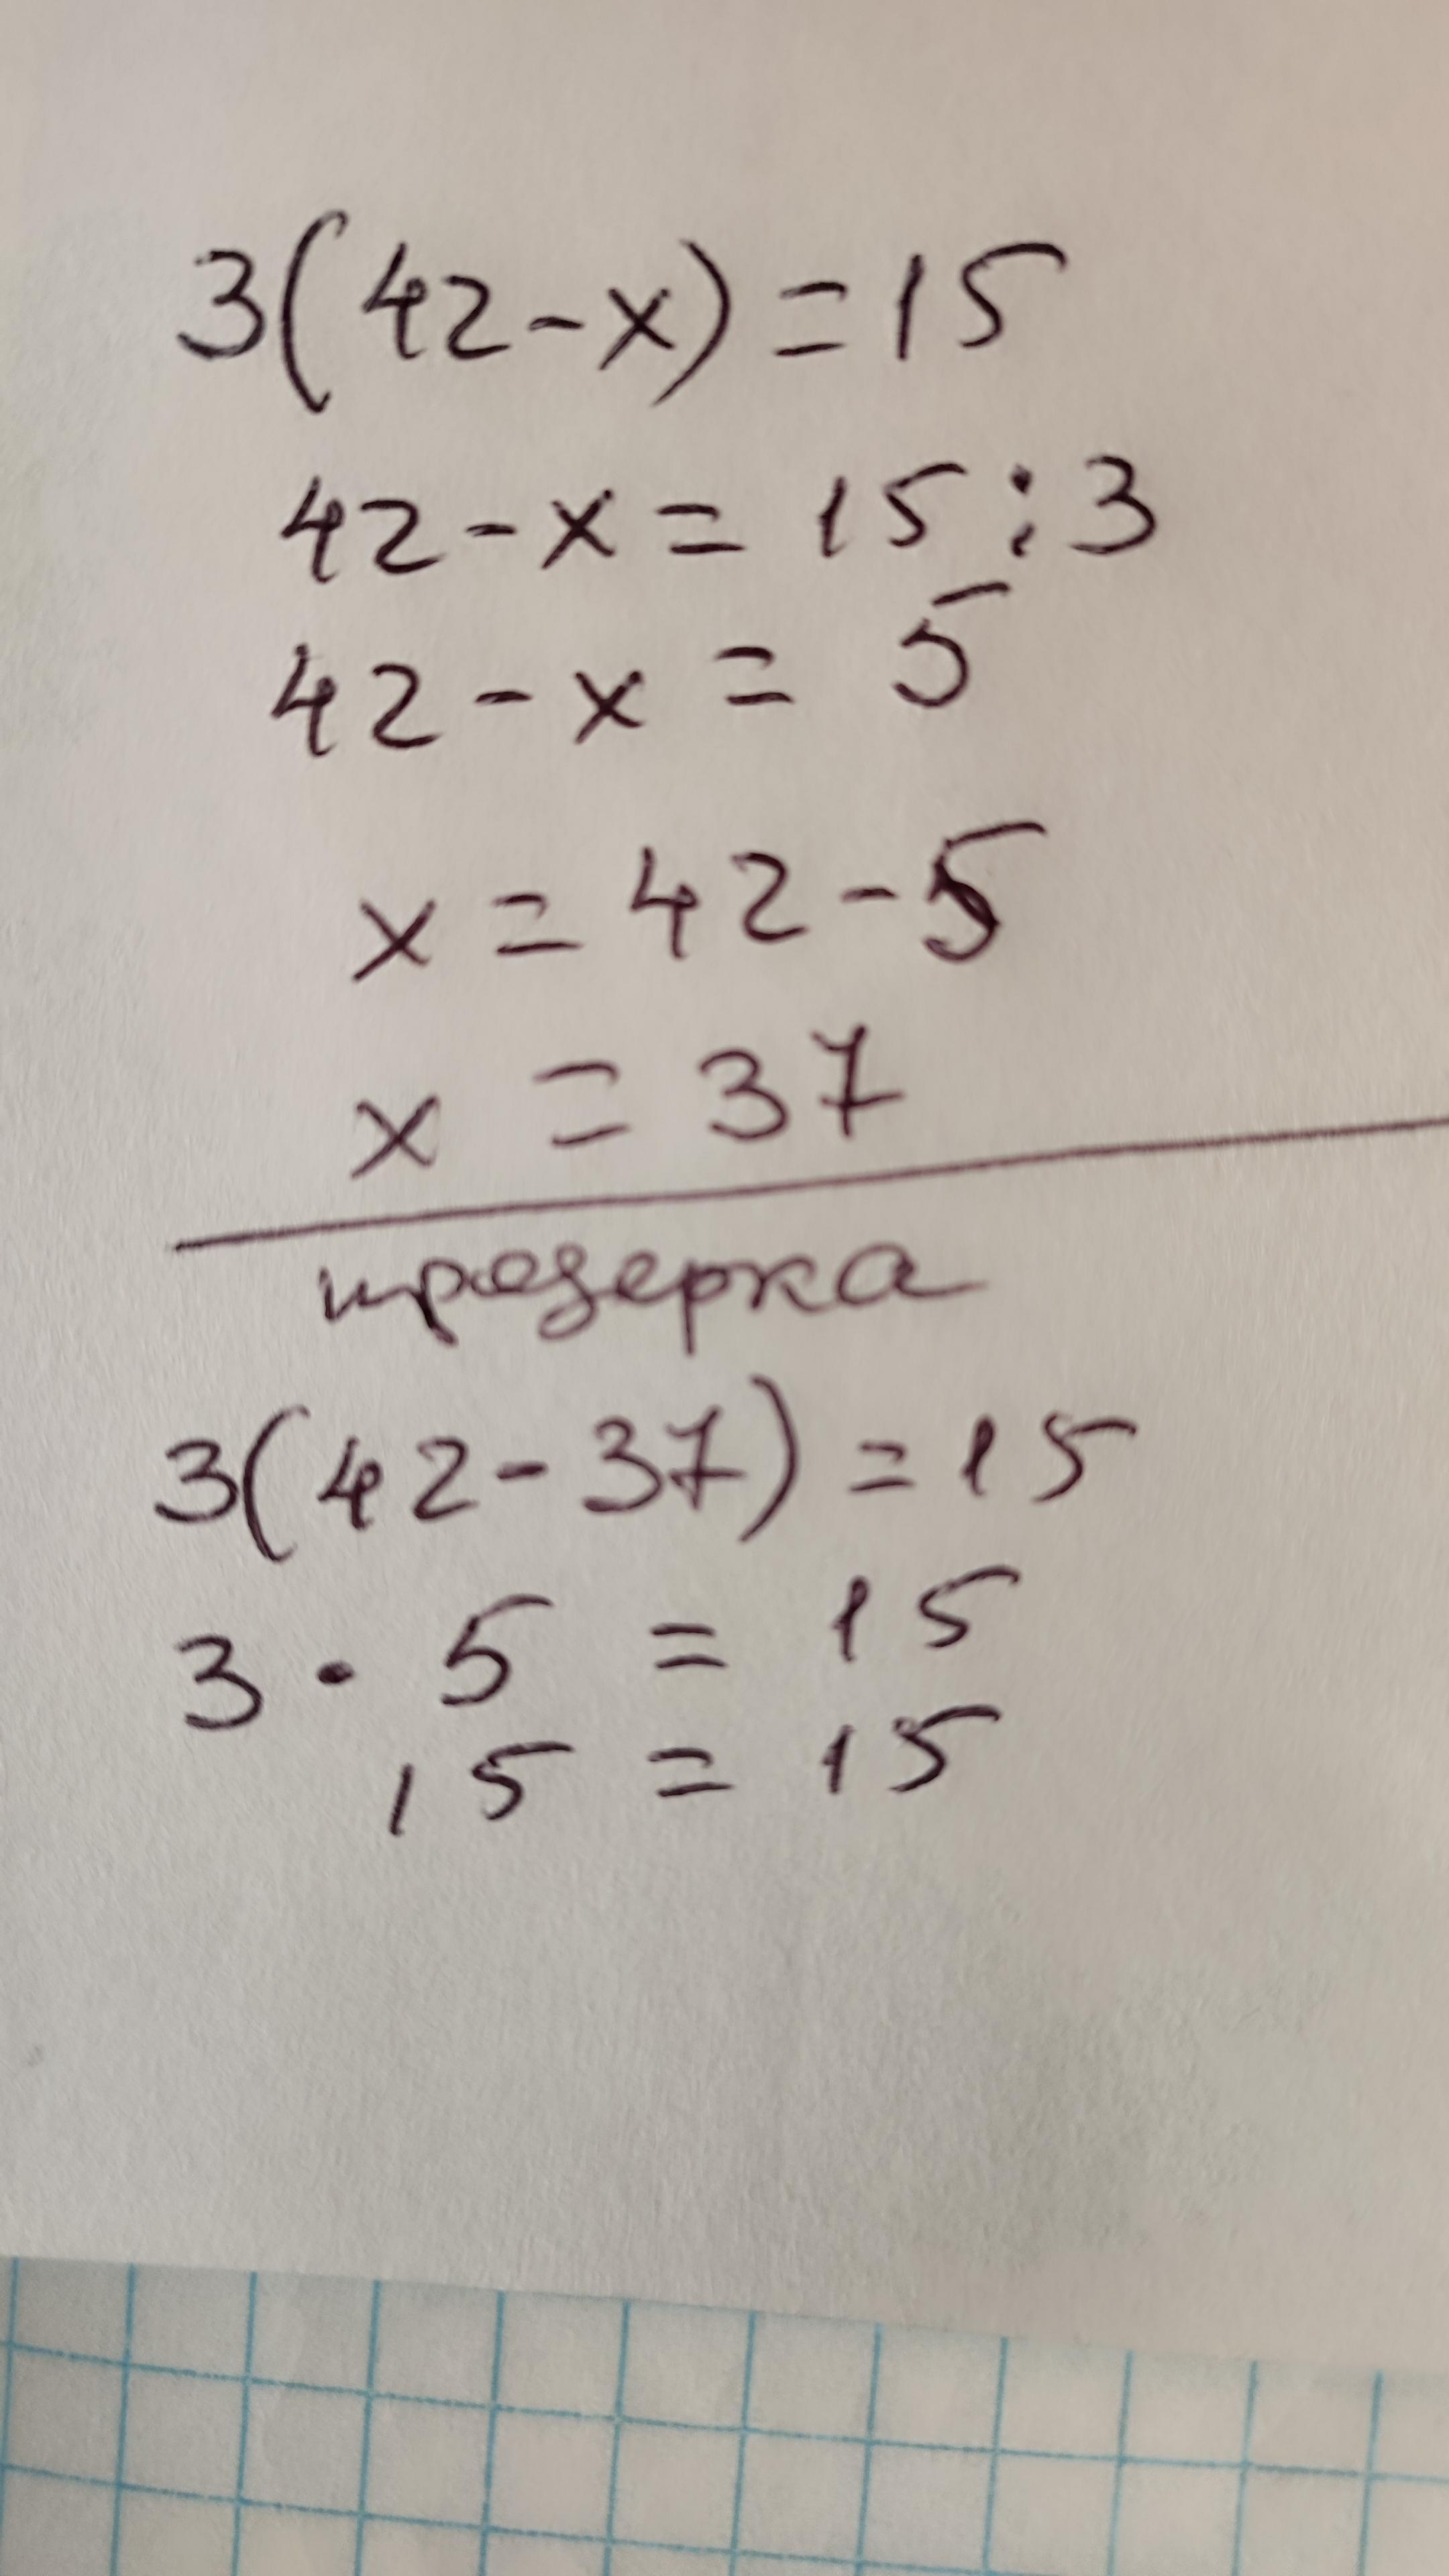 3(42-x)=15
42-x=15:3
42-x=5
x=42-5
x=37
проверка
3(42-37)=15
3·5=15
15=15